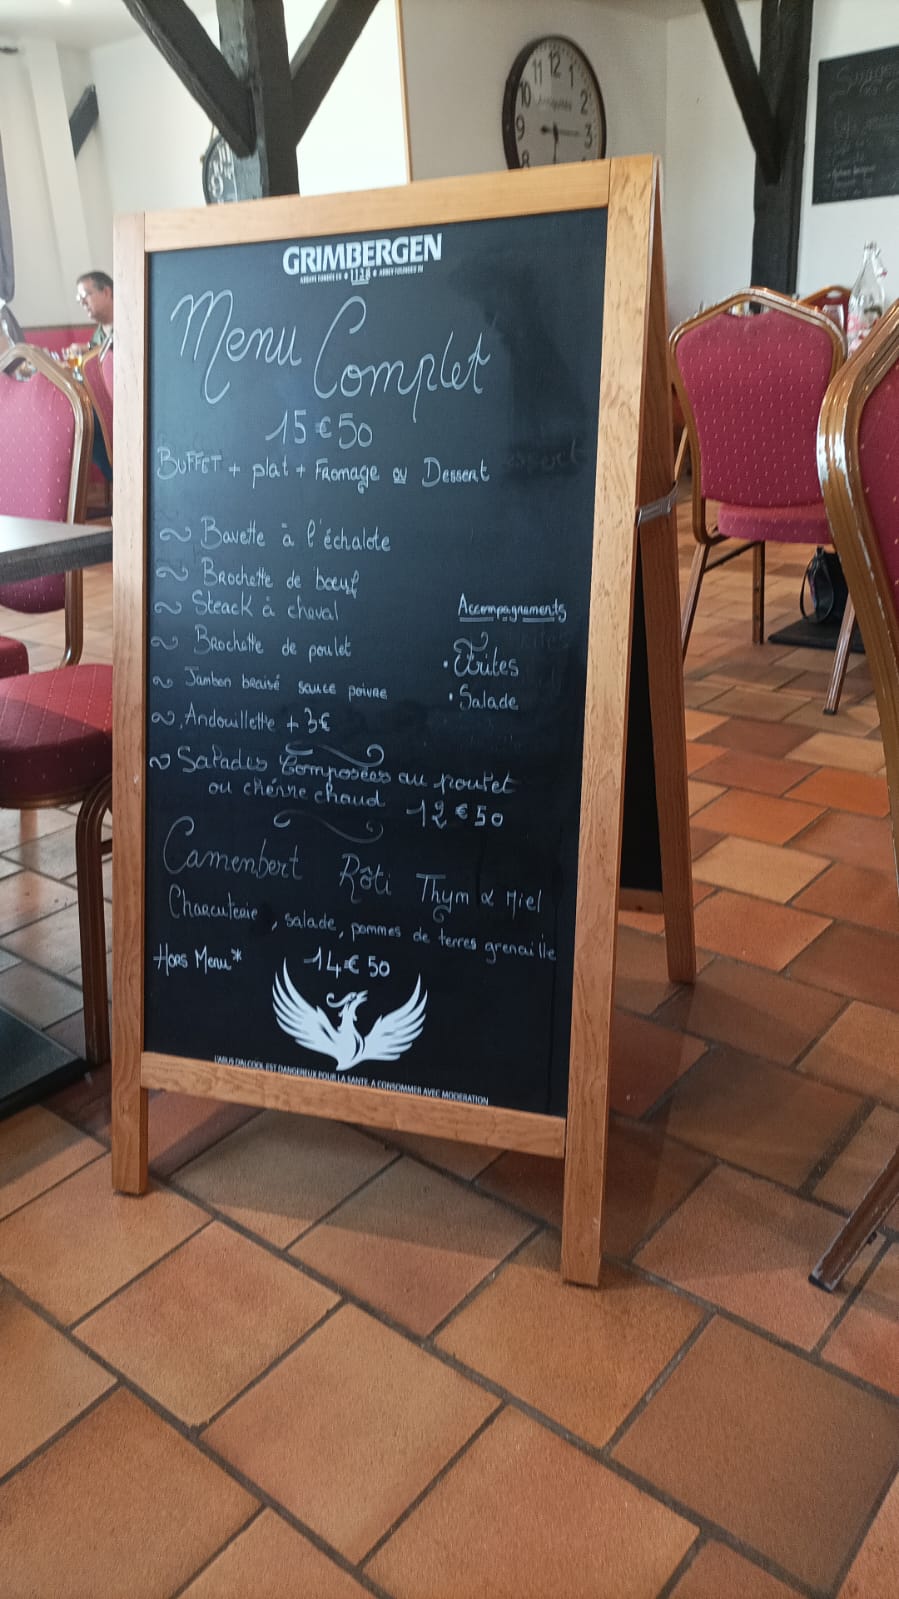 GRIMBERGEN
1128
Menu Complet
15€50
BUFFET + plat + FROMAGE ou Dessert
Bavette à l'échalote
Brochette de bœuf
Steack à cheval
Brochette de poulet
Jambon braisé sauce poivre
Andouillette + 3€
Accompagnements
• Frites
• Salade
Salades Composées au poulet
ou chèvre chaud 12€50
Camenbert Rôti Thym & Miel
Charcuterie, salade, pommes de terres grenaille
Hors Menu* 14€50
L'ABUS D'ALCOOL EST DANGEREUX POUR LA SANTÉ, A CONSOMMER AVEC MODERATION
10 11 12 1 2 3 8 9